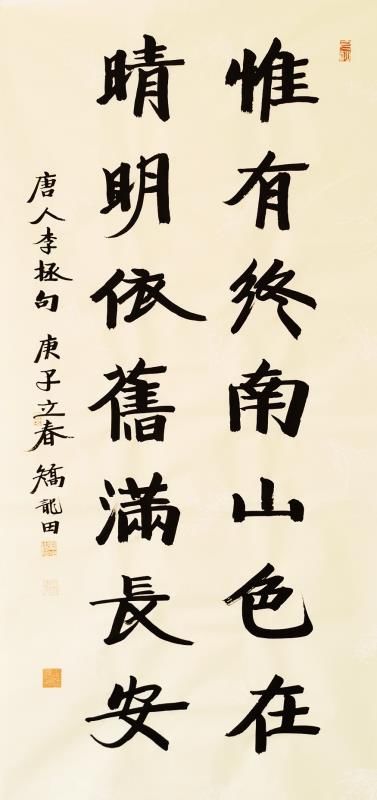 惟有終南山色在
晴明依舊滿長安
唐人李拯句 庚子立春 矯龍田